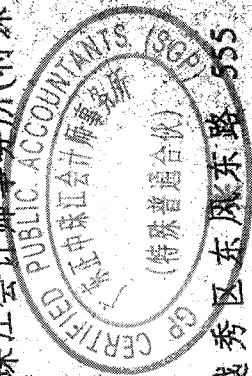 珠江会计师事务所(特殊
GP CERTIFIED PUBLIC ACCOUNTANTS (SGP)
广东正中珠江会计师事务所
(特殊普通合伙)
越秀区东风东路 555